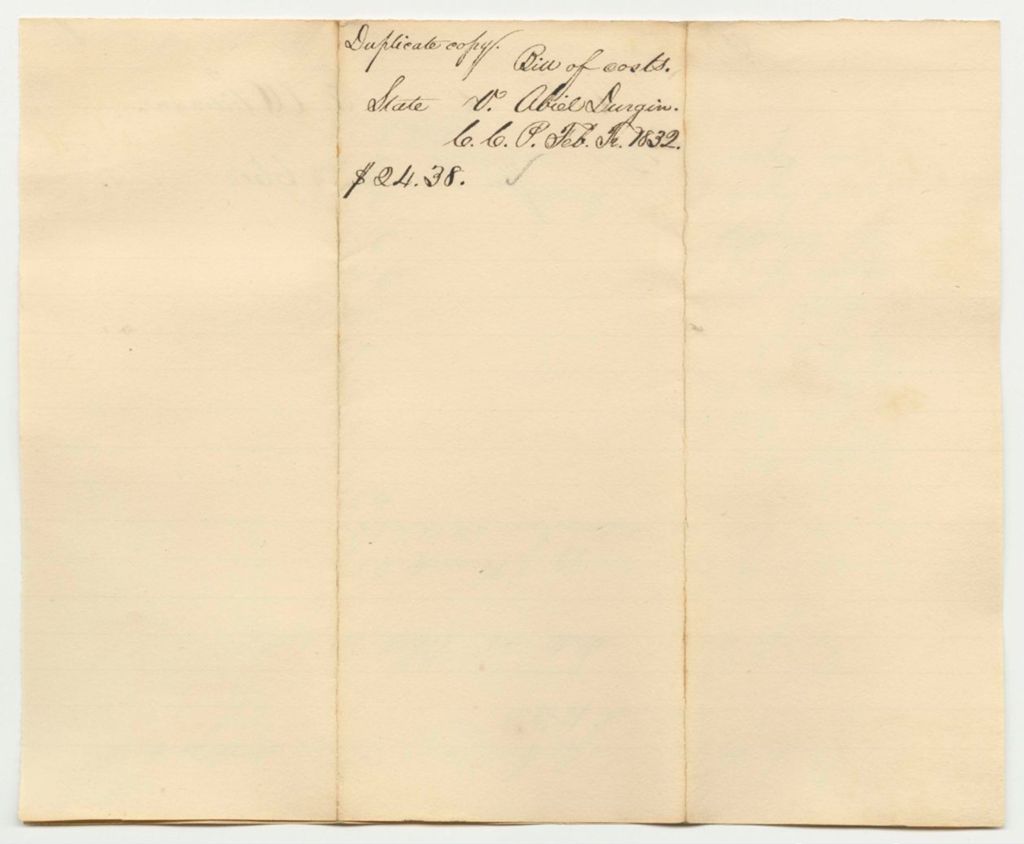 Duplicate copy.
Bill of costs.
State V. Abiel Durgin.
C. C. P. Feb. Tr. 1832.
$24.38.